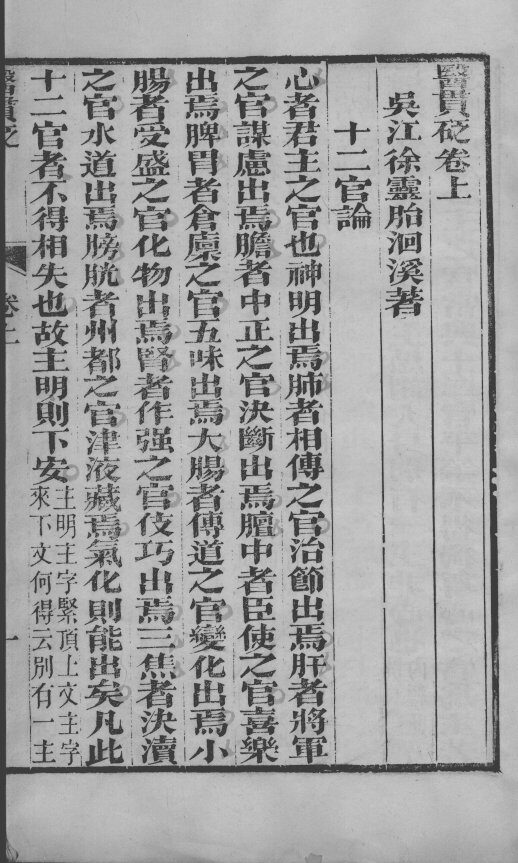 醫貫砭卷上
吳江徐靈胎洄溪著
十二官論
心者君主之官也神明出焉肺者相傅之官治節出焉肝者將軍
之官謀慮出焉膽者中正之官決斷出焉膻中者臣使之官喜樂
出焉脾胃者倉廩之官五味出焉大腸者傳道之官變化出焉小
腸者受盛之官化物出焉腎者作强之官伎巧出焉三焦者決瀆
之官水道出焉膀胱者州都之官津液藏焉氣化則能出矣凡此
十二官者不得相失也故主明則下安主明主字緊頂上文主字
來下文何得云別有一主
醫貫砭
卷上
一